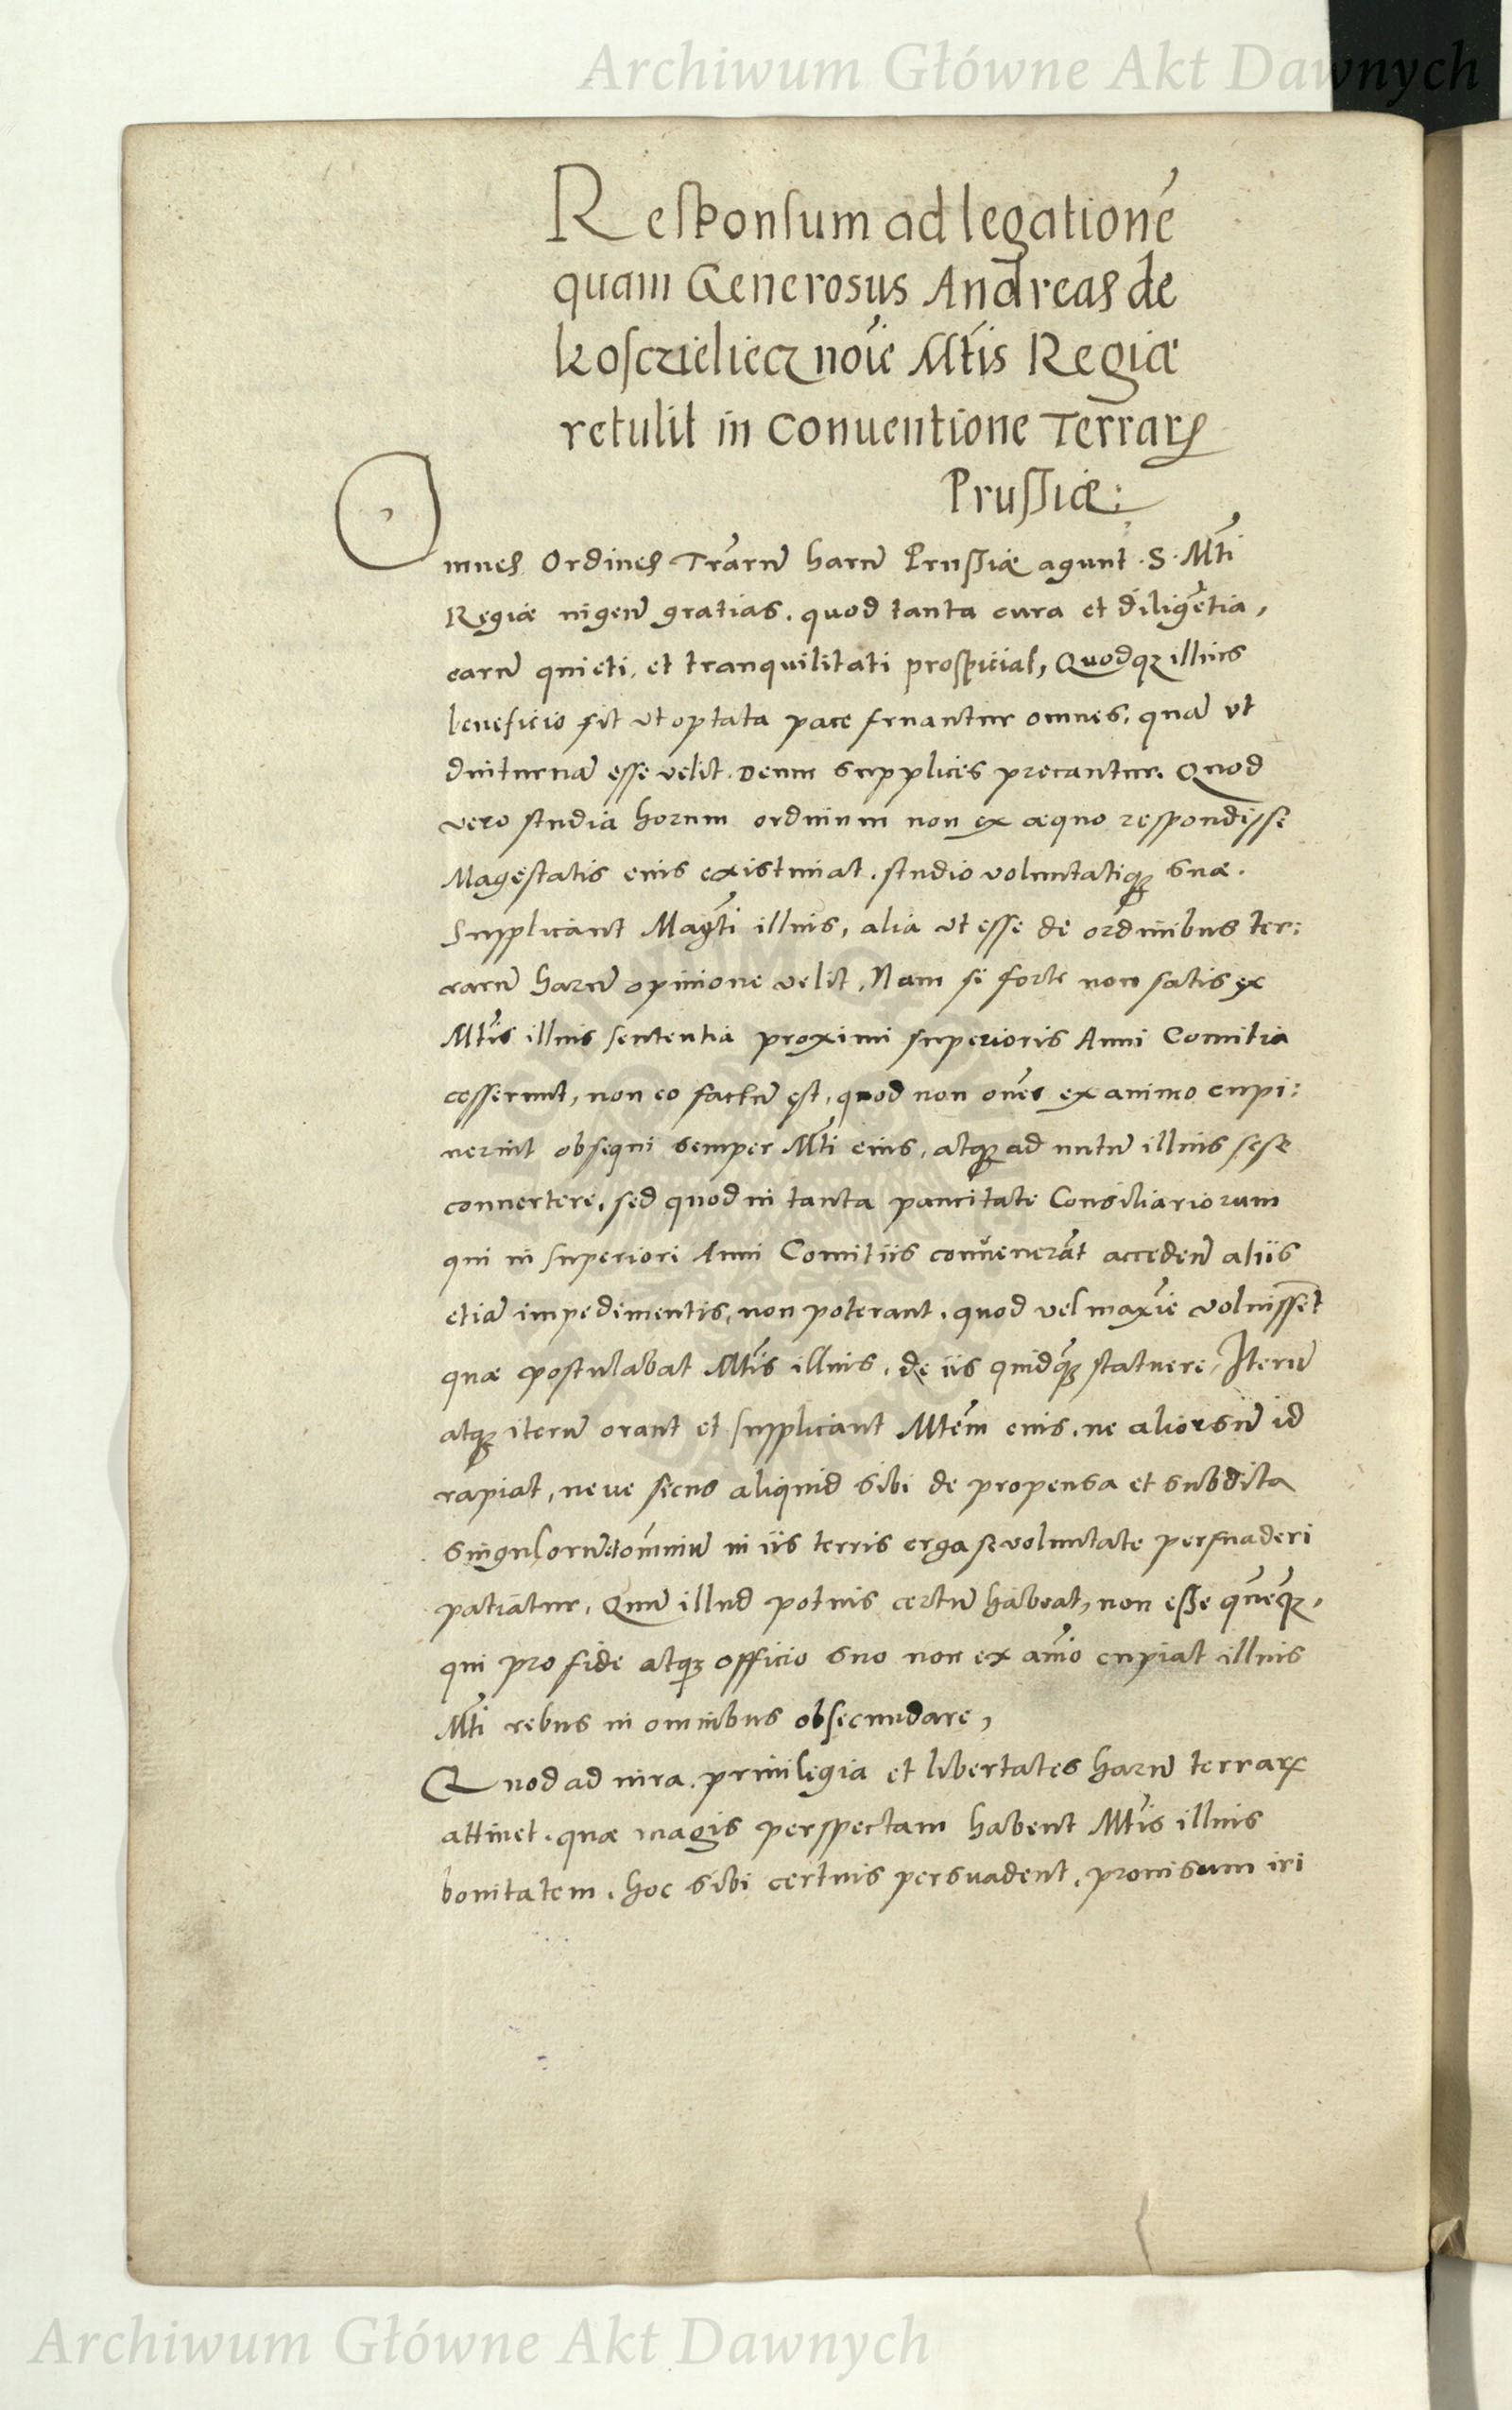 Archiwum Główne Akt Dawnych
Responsum ad legationē
quam Generosus Andreas de
Kosczieliecz noīe Mtis Regiæ
retulit in Conuentione Terrarꝝ
Prussiæ:
Omnes Ordines Trarū harū Prussiæ agunt S. Mti
Regiæ ingen̄ gratias. quod tanta cura et diligētia,
earū quieti, et tranquilitati prospiciat, Quodqꝫ illius
beneficio fit ut optata pace fruantur omnes, quā ut
diuturnā esse velit. Deum supplices precantur. Quod
vero studia horum ordinum non ex æquo respondisse
Magestatis eius existimat. studio voluntatiqꝫ suæ.
Supplicant Magti illius, alia ut esse de ordinibus ter:
rarū harū opinione velit, Nam si forte non satis ex
Mtis illius sententia proximi superioris Anni Comitia
cesserunt, non eo factū est, quod non oēs ex animo cupi:
uerint obsequi semper Mti eius, atqꝫ ad nutū illius sese
conuertere, sed quod in tanta paucitate Consiliariorum
qui in superiori Anni Comitiis conuenerāt acceden̄ aliis
etiā impedimentis, non poterant, quod vel maxīe voluissēt
quæ postulabat Mtis illius, de iis quidqꝫ statuere, Iterū
atqꝫ iterū orant et supplicant Mtem eius, ne aliorsū id
rapiat, neue secus aliquid sibi de propensa et subdita
singulorū et omniū in iis terris erga se voluntate persuaderi
patiatur, Quin illud potius certū habeat, non esse quēqꝫ,
qui pro fide atqꝫ officio suo non ex aīo cupiat illius
Mti rebus in omnibus obsecundare,
Quod ad iura. priuilegia et libertates harū terrarꝝ
attinet. quæ magis perspectam habent Mtis illius
bonitatem, hoc sibi certius persuadent, prouisum iri
Archiwum Główne Akt Dawnych